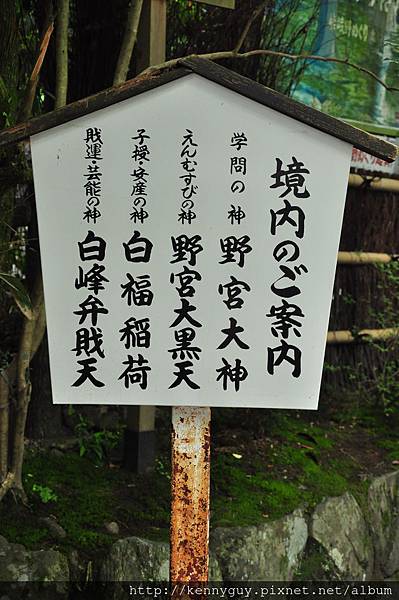 境内のご案内
学問の神 野宮大神
えんむすびの神 野宮大黒天
子授・安産の神 白福稲荷
財運・芸能の神 白峰弁財天
http://kennyguy.pixnet.net/album